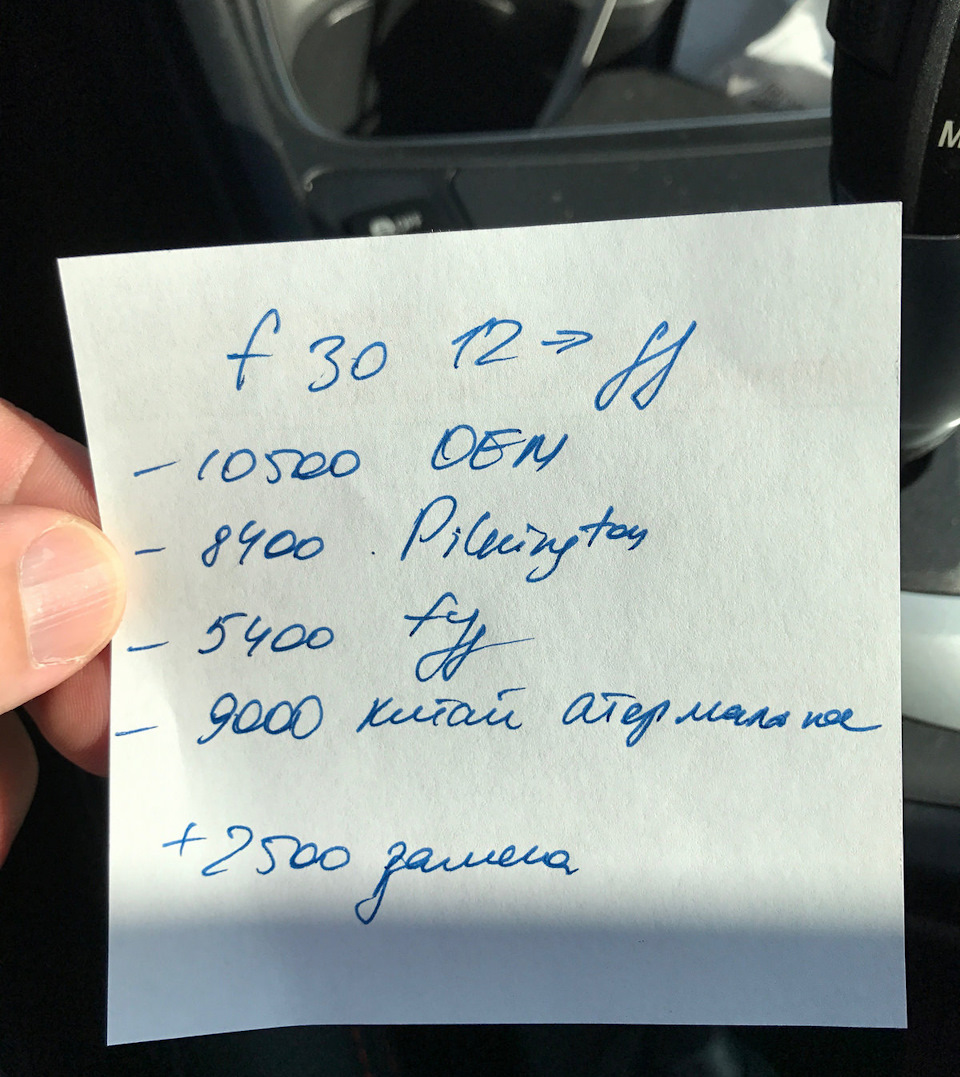 f 30 12 →
- 10500 OEM
- 8400 Pilkington
- 5400 fyg
- 9000 китай атермальное
+ 2500 замена
M
OFF